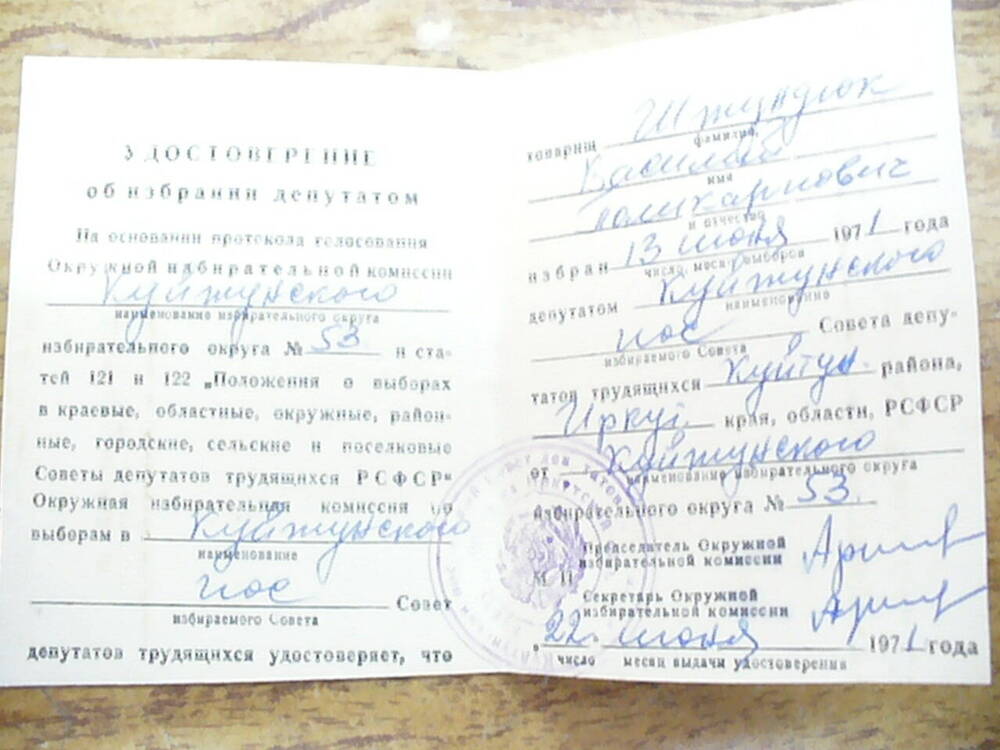 УДОСТОВЕРЕНИЕ
об избрании депутатом
На основании протокола голосования
Окружной избирательной комиссии
Куйтунского
наименование избирательного округа
избирательного округа № 53 и ста-
тей 121 и 122 „Положения о выборах
в краевые, областные, окружные, район-
ные, городские, сельские и поселковые
Советы депутатов трудящихся РСФСР“
Окружная избирательная комиссия по
выборам в Куйтунского
наименование
пос Совет
избираемого Совета
депутатов трудящихся удостоверяет, что
товарищ Штундюк
фамилия,
Василий
имя
Поликарпович
и отчество
избран 13 июня 1971 года
число, месяц выборов
депутатом Куйтунского
наименование
пос Совета депу-
избираемого Совета
татов трудящихся Куйтун района,
Иркут края, области, РСФСР
от Куйтунского
наименование избирательного округа
избирательного округа № 53.
Председатель Окружной
избирательной комиссии
М. П.
Секретарь Окружной
избирательной комиссии
„22“ июня 1971 года
число месяц выдачи удостоверения